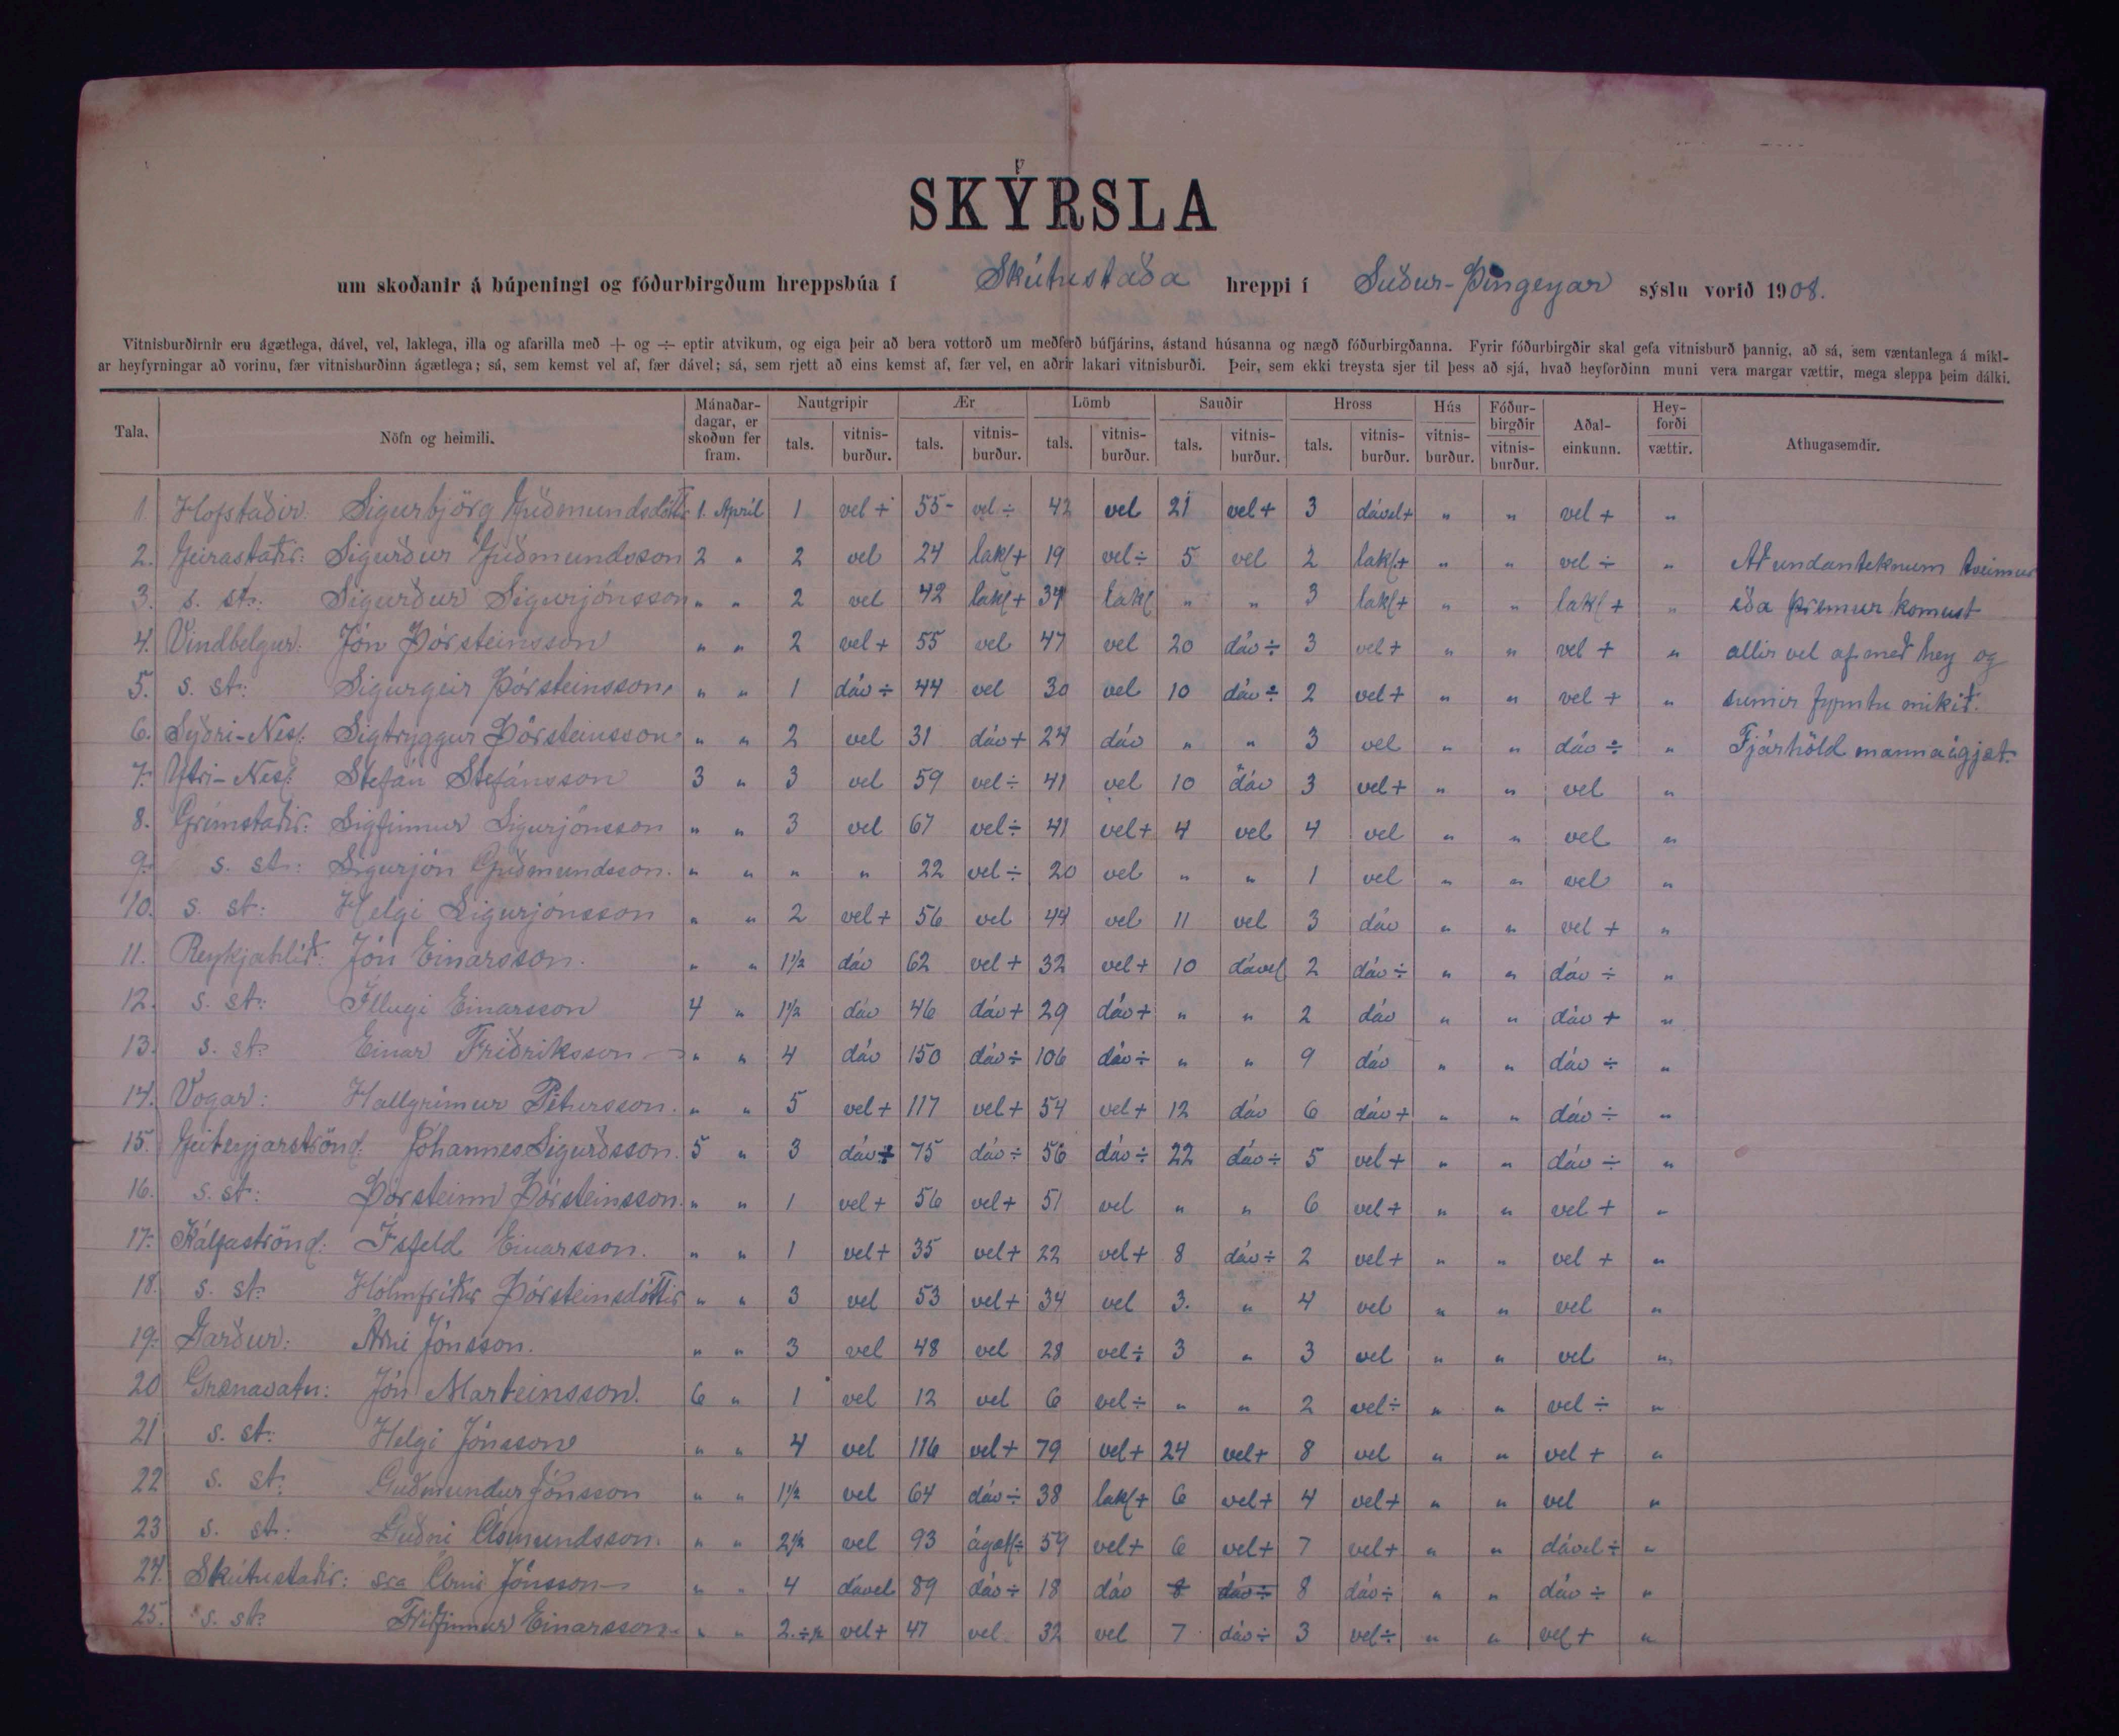 SKÝRSLA
um skoðanir á búpeningi og fóðurbirgðum hreppsbúa í Skútustaða hreppi í Suður-Þingeyar sýslu vorið 1908.
Vitnisburðirnir eru ágætlega, dável, vel, laklega, illa og afarilla með + og ÷ eptir atvikum, og eiga þeir að bera vottorð um meðferð búfjárins, ástand húsanna og nægð fóðurbirgðanna. Fyrir fóðurbirgðir skal gefa vitnisburð þannig, að sá, sem væntanlega á mikl-
ar heyfyrningar að vorinu, fær vitnisburðinn ágætlega; sá, sem kemst vel af, fær dável; sá, sem rjett að eins kemst af, fær vel, en aðrir lakari vitnisburði. Þeir, sem ekki treysta sjer til þess að sjá, hvað heyforðinn muni vera margar vættir, mega sleppa þeim dálki.
Tala. Nöfn og heimili. Mánaðar-dagar, er skoðun fer fram. Nautgripir Ær Lömb Sauðir Hross Hús Fóður-birgðir Aðal-einkunn. Hey-forði Athugasemdir.
tals. vitnis-burður. tals. vitnis-burður. tals. vitnis-burður. tals. vitnis-burður. tals. vitnis-burður. vitnis-burður. vitnis-burður. vættir.
1. Hofstaðir. Sigurbjörg Guðmundsdóttir 1. Apríl 1 vel + 55- vel ÷ 42 vel 21 vel + 3 dável + " " vel + "
2. Geirastaðir: Sigurður Guðmundsson 2 " 2 vel 24 lakl + 19 vel ÷ 5 vel 2 lakl. + " " vel ÷ " Að undanteknum tveimur
3. s. st.: Sigurður Sigurjónsson " " 2 vel 42 lakl + 34 lakl " " 3 lakl + " " lakl + " eða þremur komust
4. Vindbelgur: Jón Þórsteinsson " " 2 vel + 55 vel 47 vel 20 dáv ÷ 3 vel + " " vel + " allir vel af með hey og
5. s. st: Sigurgeir Þórsteinsson " " 1 dáv ÷ 44 vel 30 vel 10 dáv ÷ 2 vel + " " vel + " sumir fyrntu mikið.
6. Syðri-Nesl: Sigtryggur Þórsteinsson " " 2 vel 31 dáv + 24 dáv " " 3 vel " " dáv ÷ " Fjárhöld manna ágjæt.
7. Ytri-Nesl: Stefán Stefánsson 3 " 3 vel 59 vel ÷ 41 vel 10 dáv 3 vel + " " vel "
8. Grímstaðir: Sigfinnur Sigurjónsson " " 3 vel 67 vel ÷ 41 vel + 4 vel 4 vel " " vel "
9. s. st.: Sigurjón Guðmundsson. " " " " 22 vel ÷ 20 vel " " 1 vel " " vel "
10. s. st: Helgi Sigurjónsson " " 2 vel + 56 vel 44 vel 11 vel 3 dáv " " vel + "
11. Reykjahlíð: Jón Einarsson. " " 1½ dáv 62 vel + 32 vel + 10 dável 2 dáv ÷ " " dáv ÷ "
12. s. st: Illugi Einarsson 4 " 1½ dáv 46 dáv + 29 dáv + " " 2 dáv " " dáv + "
13. s. st: Einar Friðriksson " " 4 dáv 150 dáv ÷ 106 dáv ÷ " " 9 dáv " " dáv ÷ "
14. Vogar: Hallgrímur Pétursson. " " 5 vel + 117 vel + 54 vel + 12 dáv 6 dáv + " " dáv ÷ "
15. Geiteyjarströnd: Jóhannes Sigurðsson. 5 " 3 dáv ÷ 75 dáv ÷ 56 dáv ÷ 22 dáv ÷ 5 vel + " " dáv ÷ "
16. s. st: Þórsteinn Þórsteinsson. " " 1 vel + 56 vel + 51 vel " " 6 vel + " " vel + "
17. Kálfaströnd: Ísfeld Einarsson. " " 1 vel + 35 vel + 22 vel + 8 dáv ÷ 2 vel + " " vel + "
18. s. st: Hólmfríður Þórsteinsdóttir " " 3 vel 53 vel + 34 vel 3. " 4 vel " " vel "
19. Garður: Árni Jónsson. " " 3 vel 48 vel 28 vel ÷ 3 " 3 vel " " vel "
20 Grænavatn: Jón Marteinsson. 6 " 1 vel 12 vel 6 vel ÷ " " 2 vel ÷ " " vel ÷ "
21 s. st: Helgi Jónsson " " 4 vel 116 vel + 79 vel + 24 vel + 8 vel " " vel + "
22 s. st: Guðmundur Jónsson " " 1½ vel 64 dáv ÷ 38 lakl + 6 vel + 4 vel + " " vel "
23 s. st: Guðni Ásmundsson. " " 2½ vel 93 ágætl ÷ 59 vel + 6 vel + 7 vel + " " dável ÷ "
24. Skútustaðir: sra Árni Jónsson " " 4 dável 89 dáv ÷ 18 dáv 8 dáv ÷ 8 dáv ÷ " " dáv ÷ "
25. s. st: Friðfinnur Einarsson " " 2. ÷ ½ vel + 47 vel. 32 vel 7 dáv ÷ 3 vel ÷ " " vel + "